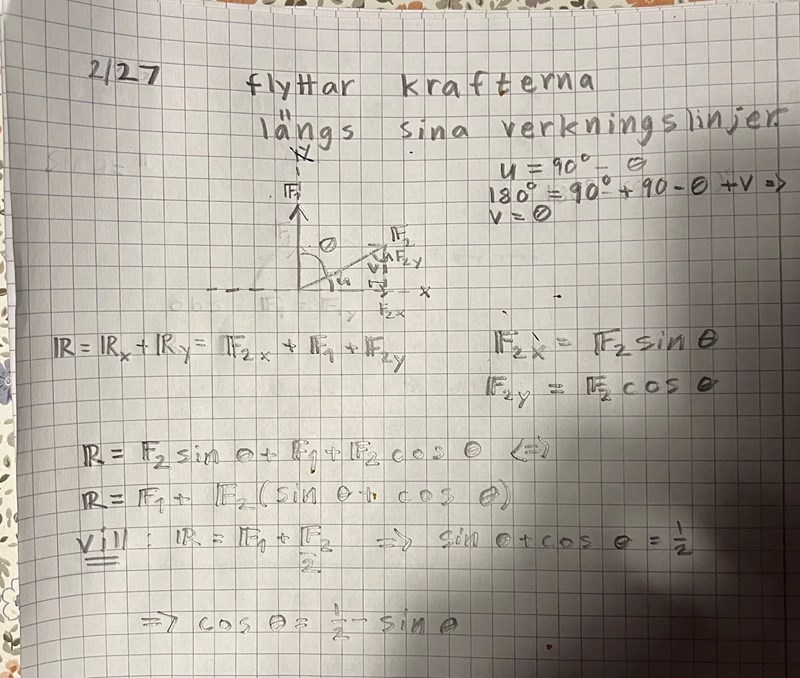 2/27
flyttar krafterna
längs sina verkningslinjer.
u = 90° - θ
180° = 90° + 90 - θ + v =>
v = θ
y
𝔽₁
θ
𝔽₂
𝔽₂y
v
u
x
𝔽₂x
ℝ = ℝx + ℝy = 𝔽₂x + 𝔽₁ + 𝔽₂y
𝔽₂x = 𝔽₂ sin θ
𝔽₂y = 𝔽₂ cos θ
ℝ = 𝔽₂ sin θ + 𝔽₁ + 𝔽₂ cos θ <=>
ℝ = 𝔽₁ + 𝔽₂ (sin θ + cos θ)
vill : ℝ = 𝔽₁ + 𝔽₂/2 => sin θ + cos θ = 1/2
=> cos θ = 1/2 - sin θ